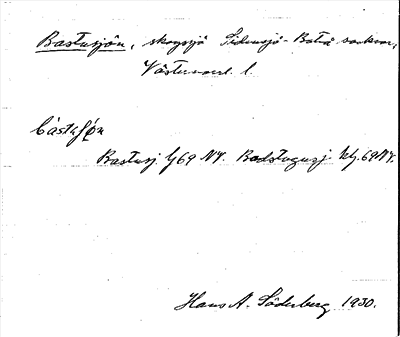 Bastusjön, skogssjö Sidensjö-Boteå socknar,
Västernorrl. l.
bàstɥʃǫn
Bastusj. Gj69 NV. Badstugusj. Kfg.69NV.
Hans A. Söderberg 1930.